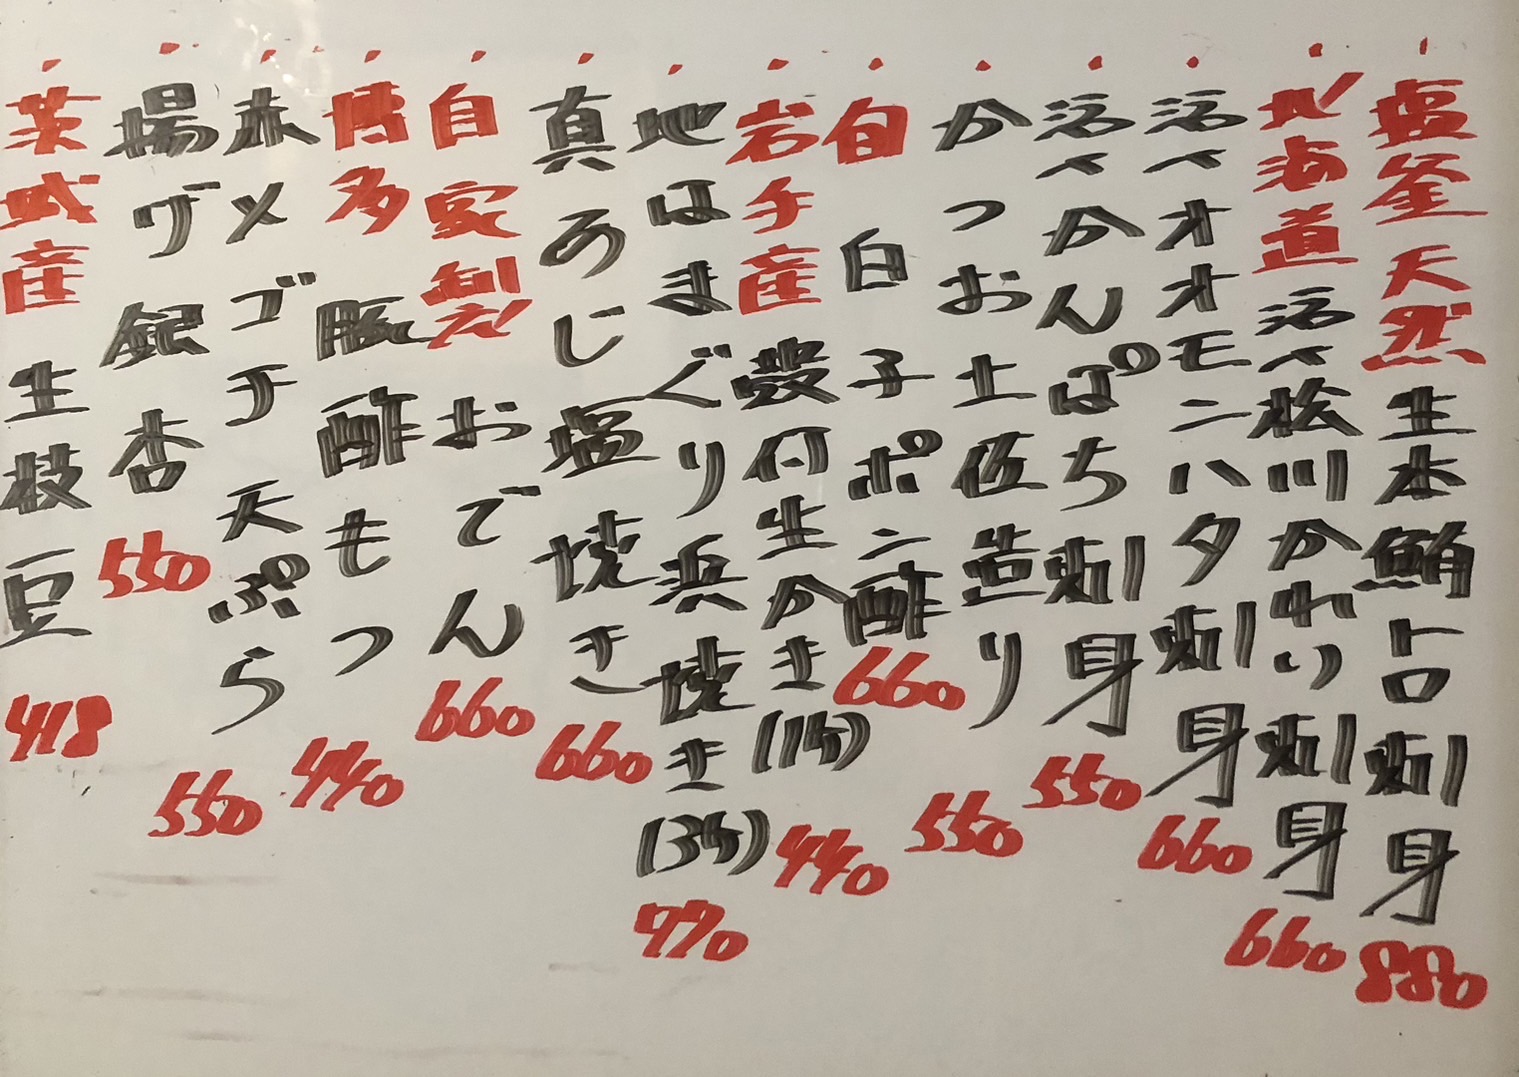 ・塩釜天然生本鮪トロ刺身 880
・北海道活〆松川かれい刺身 660
・活〆オオモンハタ刺身 660
・活〆かんぱち刺身 550
・かつお土佐造り 550
・旬 白子ポン酢 660
・岩手産 殻付生かき(1ケ) 440
・地はまぐり浜焼き(3ケ) 770
・真あじ塩焼き 660
・自家製!! おでん 660
・博多 豚酢もつ 440
・赤メゴチ天ぷら 550
・揚ゲ銀杏 550
・茨城産 生枝豆 418